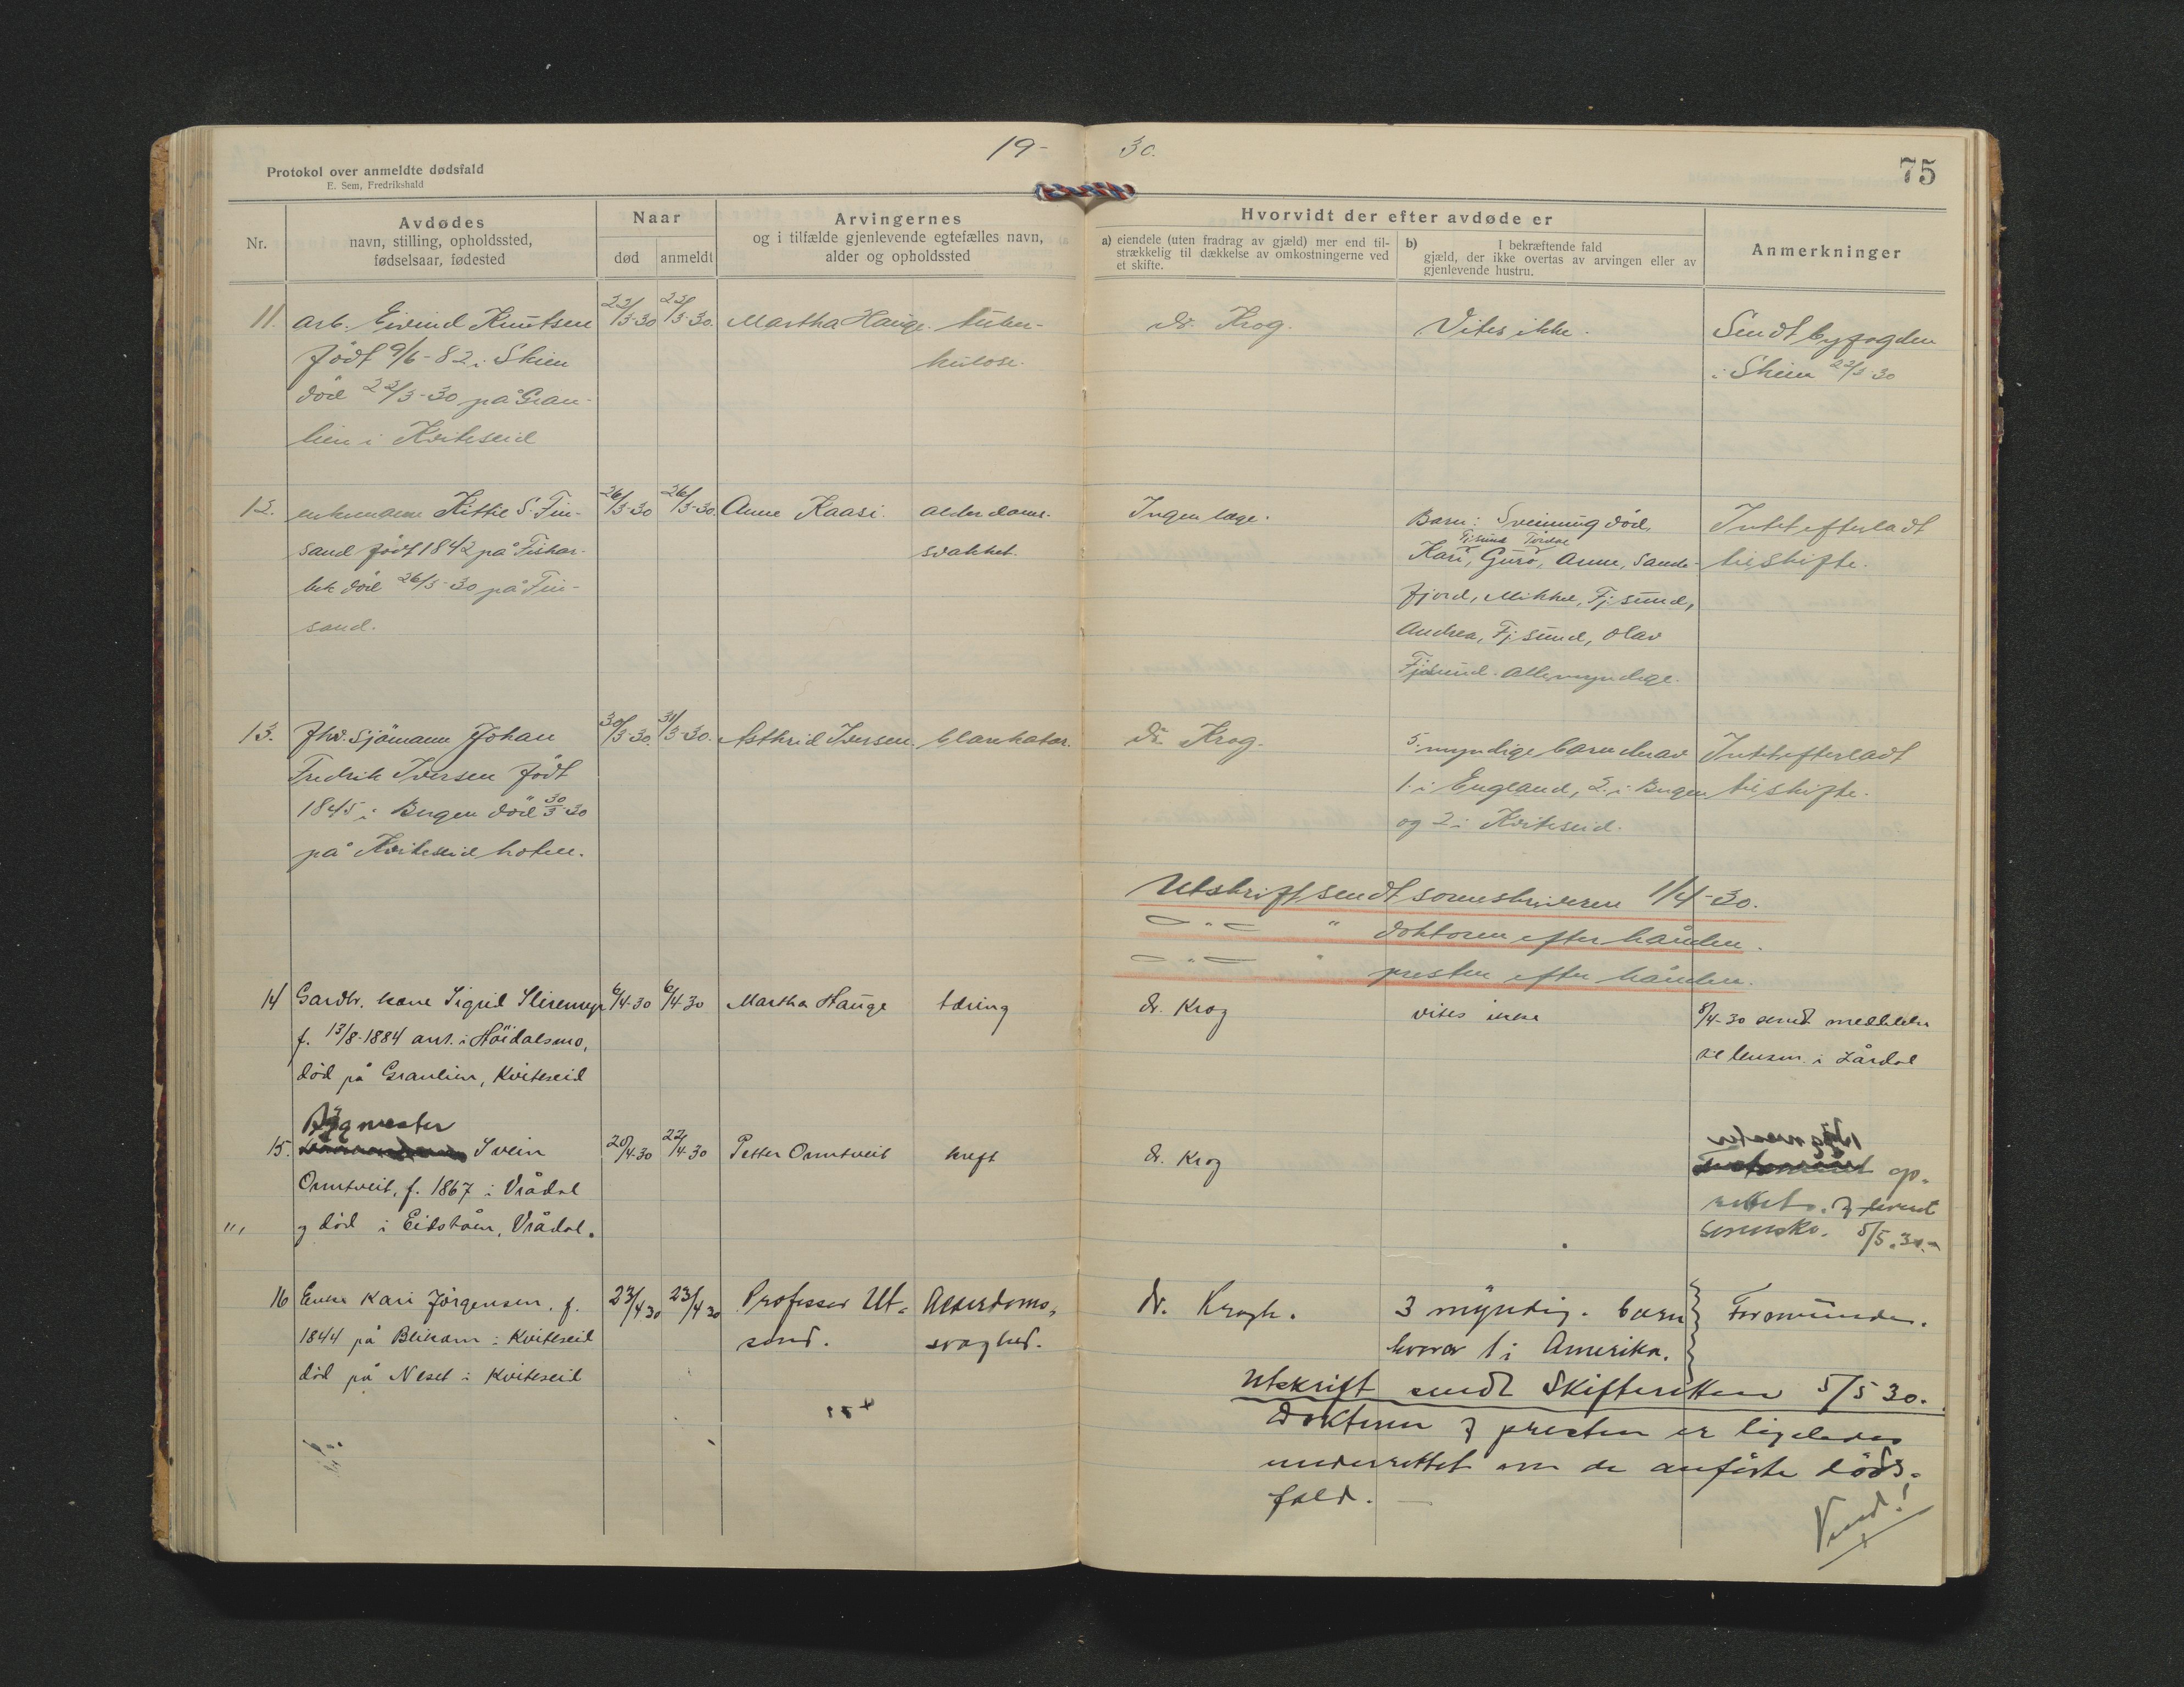 19-30.
75
Protokol over anmeldte dødsfald
E. Sem, Fredrikshald
Nr.
Avdødes
navn, stilling, opholdssted,
fødselsaar, fødested
Naar
død
anmeldt
Arvingernes
og i tilfælde gjenlevende egtefælles navn,
alder og opholdssted
Hvorvidt der efter avdøde er
a) eiendele (uten fradrag av gjæld) mer end til-
strækkelig til dækkelse av omkostningerne ved
et skifte.
b) I bekræftende fald
gjæld, der ikke overtas av arvingen eller av
gjenlevende hustru.
Anmerkninger
11. arb. Eivind Knutsen 22/3-30 23/3-30. Martha Hauge. tuber- dr. Krog. Vites ikke. Sendt byfogden
født 9/6-82 i Skien kulose. i Skien 23/3-30
død 22/3-30 på Gran-
lien i Kviteseid
12. Kittil S. Tin- 26/3-30 26/3-30. Anne Kaasi. alderdoms- Ingen læge. Barn: Sveinung død, Intet efterladt
Fjsund Tørdal
sand født 1842 på svakhet. Kari, Guro, Anne, Sande- til skifte.
død 26/3-30 på Tin- fjord, Mikkel, Fj.sund,
sand. Andrea, Fj.sund, Olav
Fjsund. Alle myndige.
13. fhv. sjømann Johan 30/3-30. 31/3-30. Asthrid Iversen. blærekatar. dr. Krog. 5 myndige barn derav Intet efterladt
Fredrik Iversen født 1 i England, 2 i Bergen til skifte.
1845 i Bergen død 30/3-30 og 2 i Kviteseid.
på Kviteseid hotell.
Utskrift sendt sorenskriveren 1/4-30.
— " — " doktoren efter hånden.
— " — " presten efter hånden.
14 Gardbr. kone Sigrid 6/4-30 6/4-30 Martha Hauge tæring dr. Krog vites ikke 8/4-30 sendt meddelelse
f. 13/8-1884 ant. i Höidalsmo, lensm. i Lårdal
död på Granlien, Kviteseid
Byg mester
15. Svein 20/4-30 22/4-30 Petter Ormtveit kreft dr. Krog
Ormtveit, f. 1867 i Vrådal
og död i Eidståen, Vrådal.
sorenskr. 5/5.30.-
16 Enke Kari Jörgensen. f. 23/4 30 23/4 30 Professor Ut- Alderdoms- dr. Krogh. 3 myndig. barn Formünder.
1844 på i Kviteseid sond. svaghed. hvorav 1 i Amerika.
död på Neset i Kviteseid
Utskrift sendt Skifteretten 5/5 30.
Doktoren og presten er ligeledes
underrettet om de anførte döds-
fald. —
Vend!